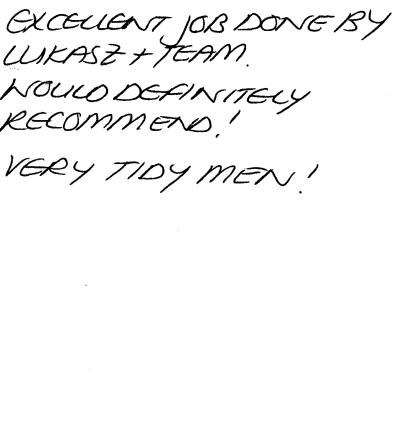 EXCELLENT JOB DONE BY
LUKASZ + TEAM.
WOULD DEFINITELY
RECOMMEND!
VERY TIDY MEN!